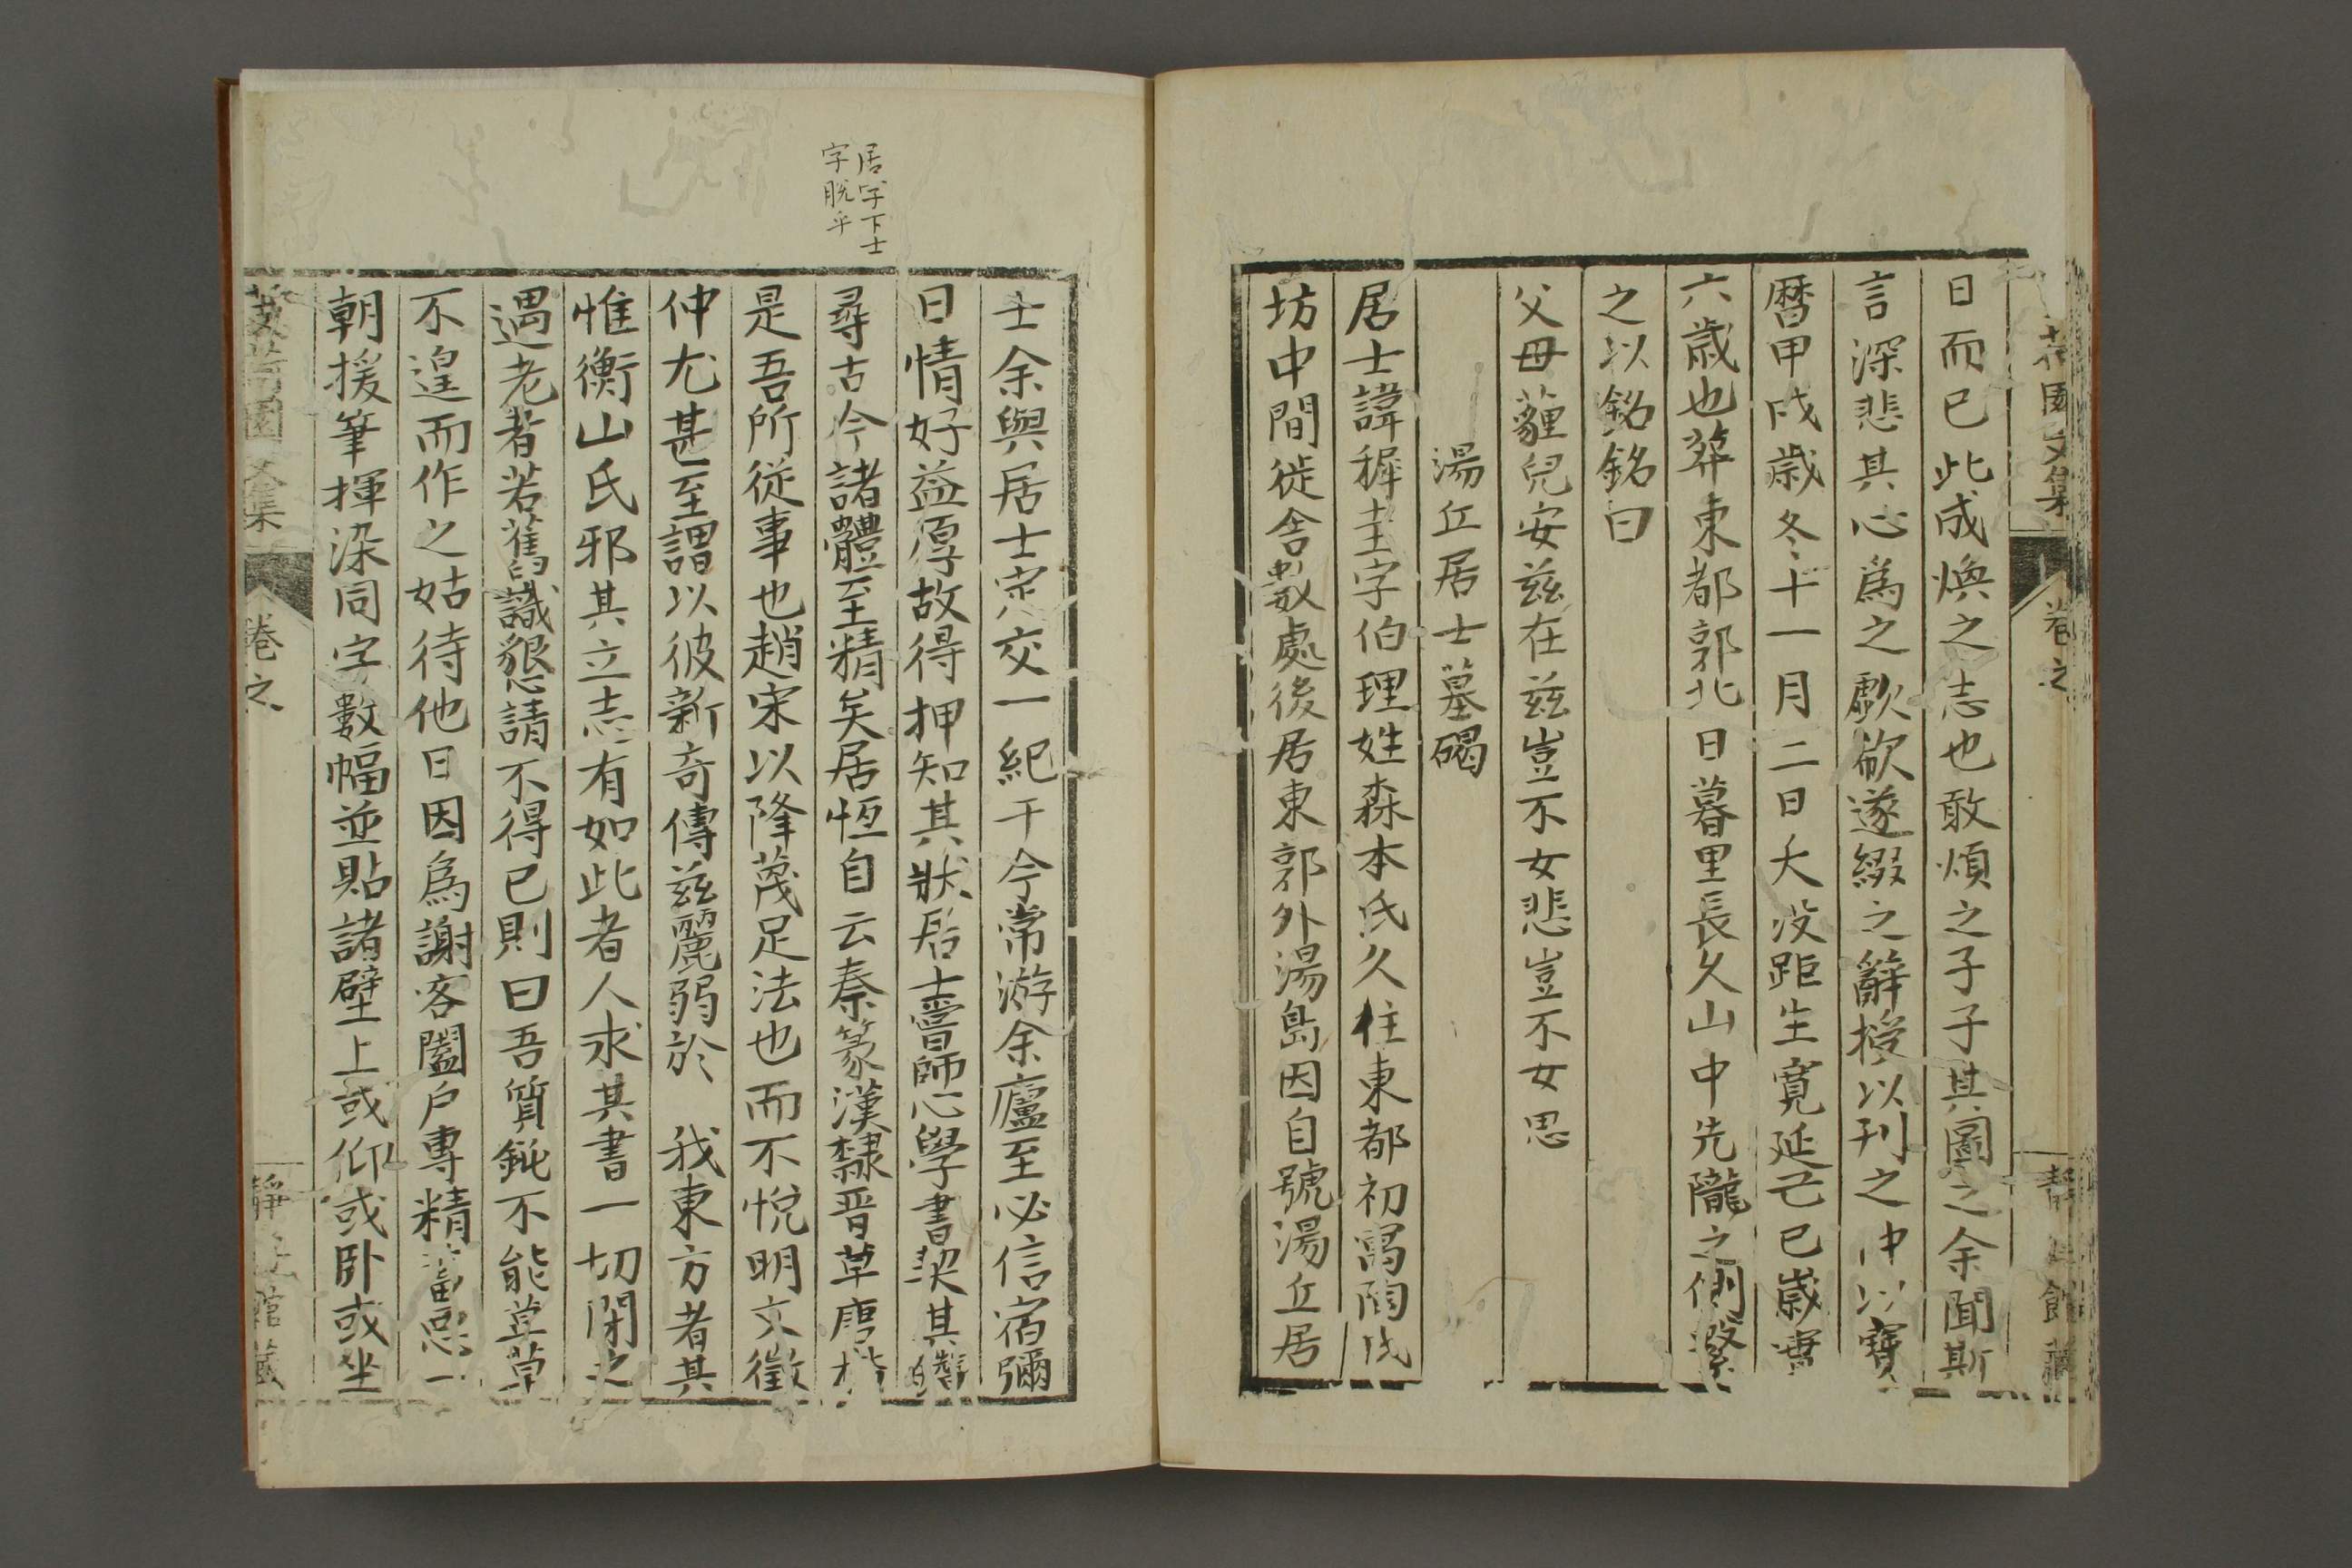 日而已此成煥之志也敢煩之子子其圖之余聞斯
言深悲其心爲之歔欷遂綴之辭授以刊之沖以寶
曆甲戌歲冬十一月二日夭沒距生寛延己巳歲實
六歳也葬東都郭北日暮里長久山中先隴之側繫
之以銘銘曰
父母薶兒安兹在兹豈不女悲豈不女思
湯丘居士墓碣
居士諱穉圭字伯理姓森本氏久住東都初寓陶氏
坊中間徙舍數處後居東郭外湯島因自號湯丘居
士余與居士定交一紀于今常游余廬至必信宿彌
日情好益厚故得押知其狀居士嘗師心學書契其
尋古今諸體至精矣居恆自云秦篆漢隸晋草唐楷
是吾所從事也趙宋以降蔑足法也而不悅明文徵
仲尤甚至謂以彼新奇傳兹麗弱於 我東方者其
惟衡山氏邪其立志有如此者人求其書一切閉之
遇老者若舊識懇請不得已則曰吾質鈍不能草草
不遑而作之姑待他日因爲謝客闔戶專精蓄思一
朝援筆揮染同字數幅並貼諸壁上或仰或卧或坐
居字下士
字脫乎
園文集
卷之
靜 館藏